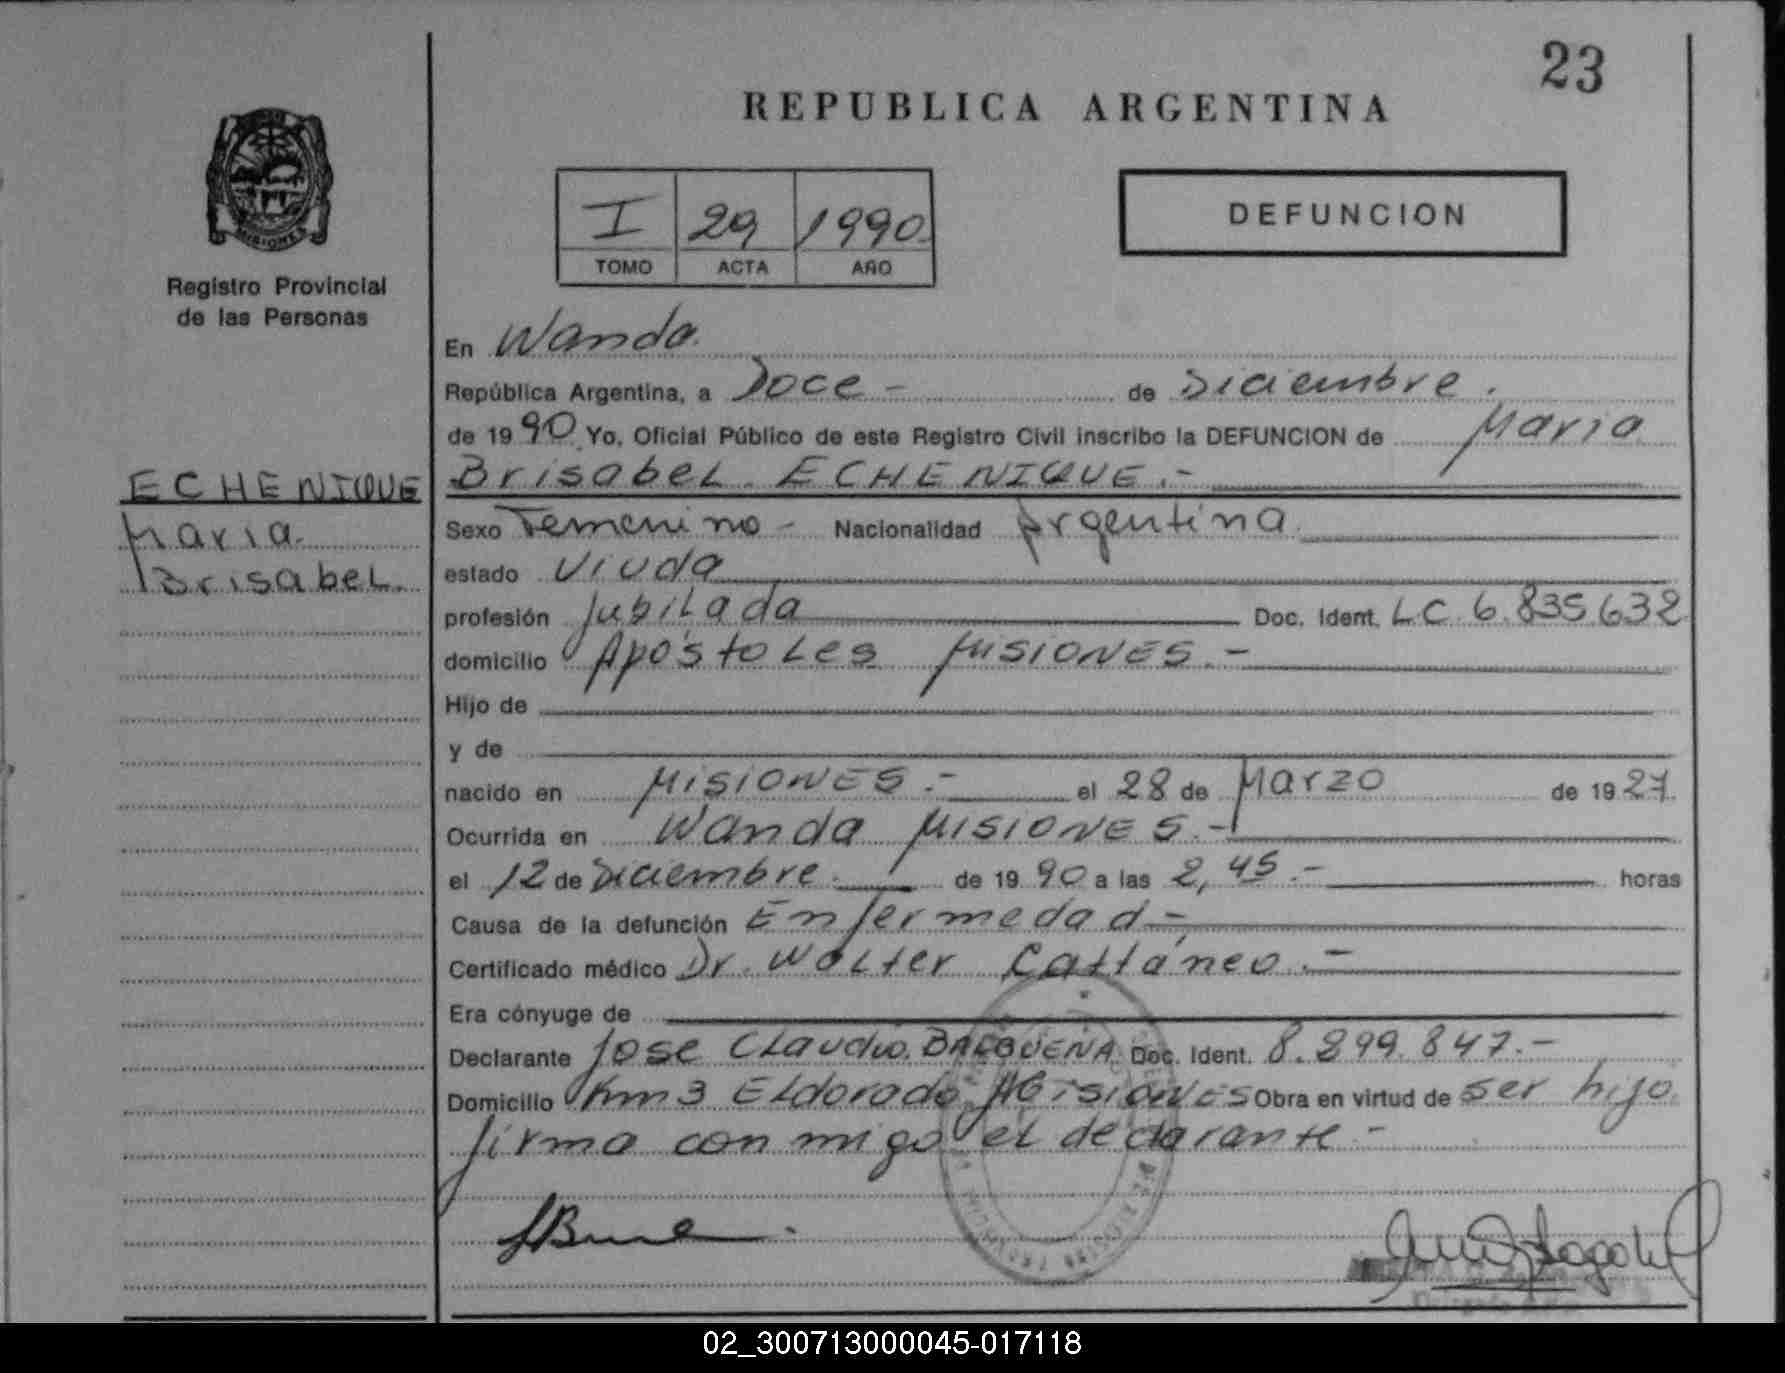 23
REPUBLICA ARGENTINA
MISIONES
Registro Provincial
de las Personas
I 29 1990
TOMO ACTA AÑO
DEFUNCION
ECHENIQUE
Maria
Brisabel.
En Wanda.
República Argentina, a Doce - de Diciembre.
de 1990 Yo, Oficial Público de este Registro Civil inscribo la DEFUNCION de Maria
Brisabel ECHENIQUE.-
Sexo Femenino - Nacionalidad Argentina
estado Viuda
profesión Jubilada Doc. Ident. LC 6.835.632
domicilio Apóstoles Misiones.-
Hijo de
y de
nacido en Misiones.- el 28 de Marzo de 1927.
Ocurrida en Wanda Misiones.-
el 12 de Diciembre. de 1990 a las 2,45.- horas
Causa de la defunción Enfermedad-
Certificado médico Dr. Walter Cattáneo.-
Era cónyuge de
Declarante Jose Claudio BALBUENA Doc. Ident. 8.299.847.-
Domicilio Km 3 Eldorado Misiones Obra en virtud de ser hijo
firma con migo el declarante -
02_300713000045-017118